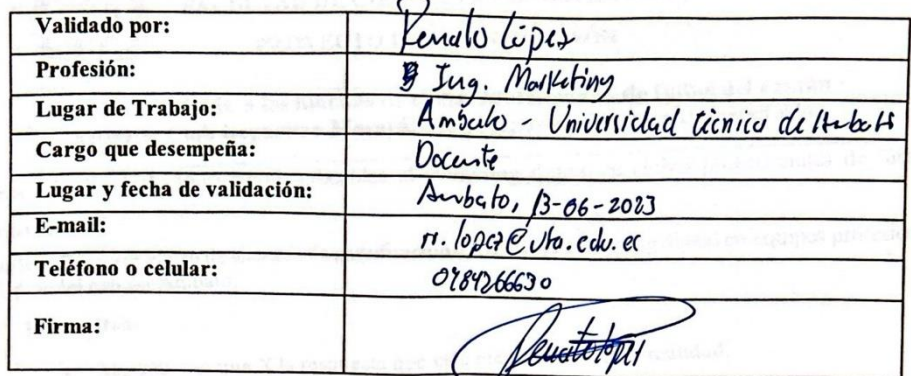 Validado por: Renato López
Profesión: Ing. Marketing
Lugar de Trabajo: Ambato - Universidad técnica de Ambato
Cargo que desempeña: Docente
Lugar y fecha de validación: Ambato, 13-06-2023
E-mail: r.lopez@uta.edu.ec
Teléfono o celular: 0984266630
Firma: Renato López